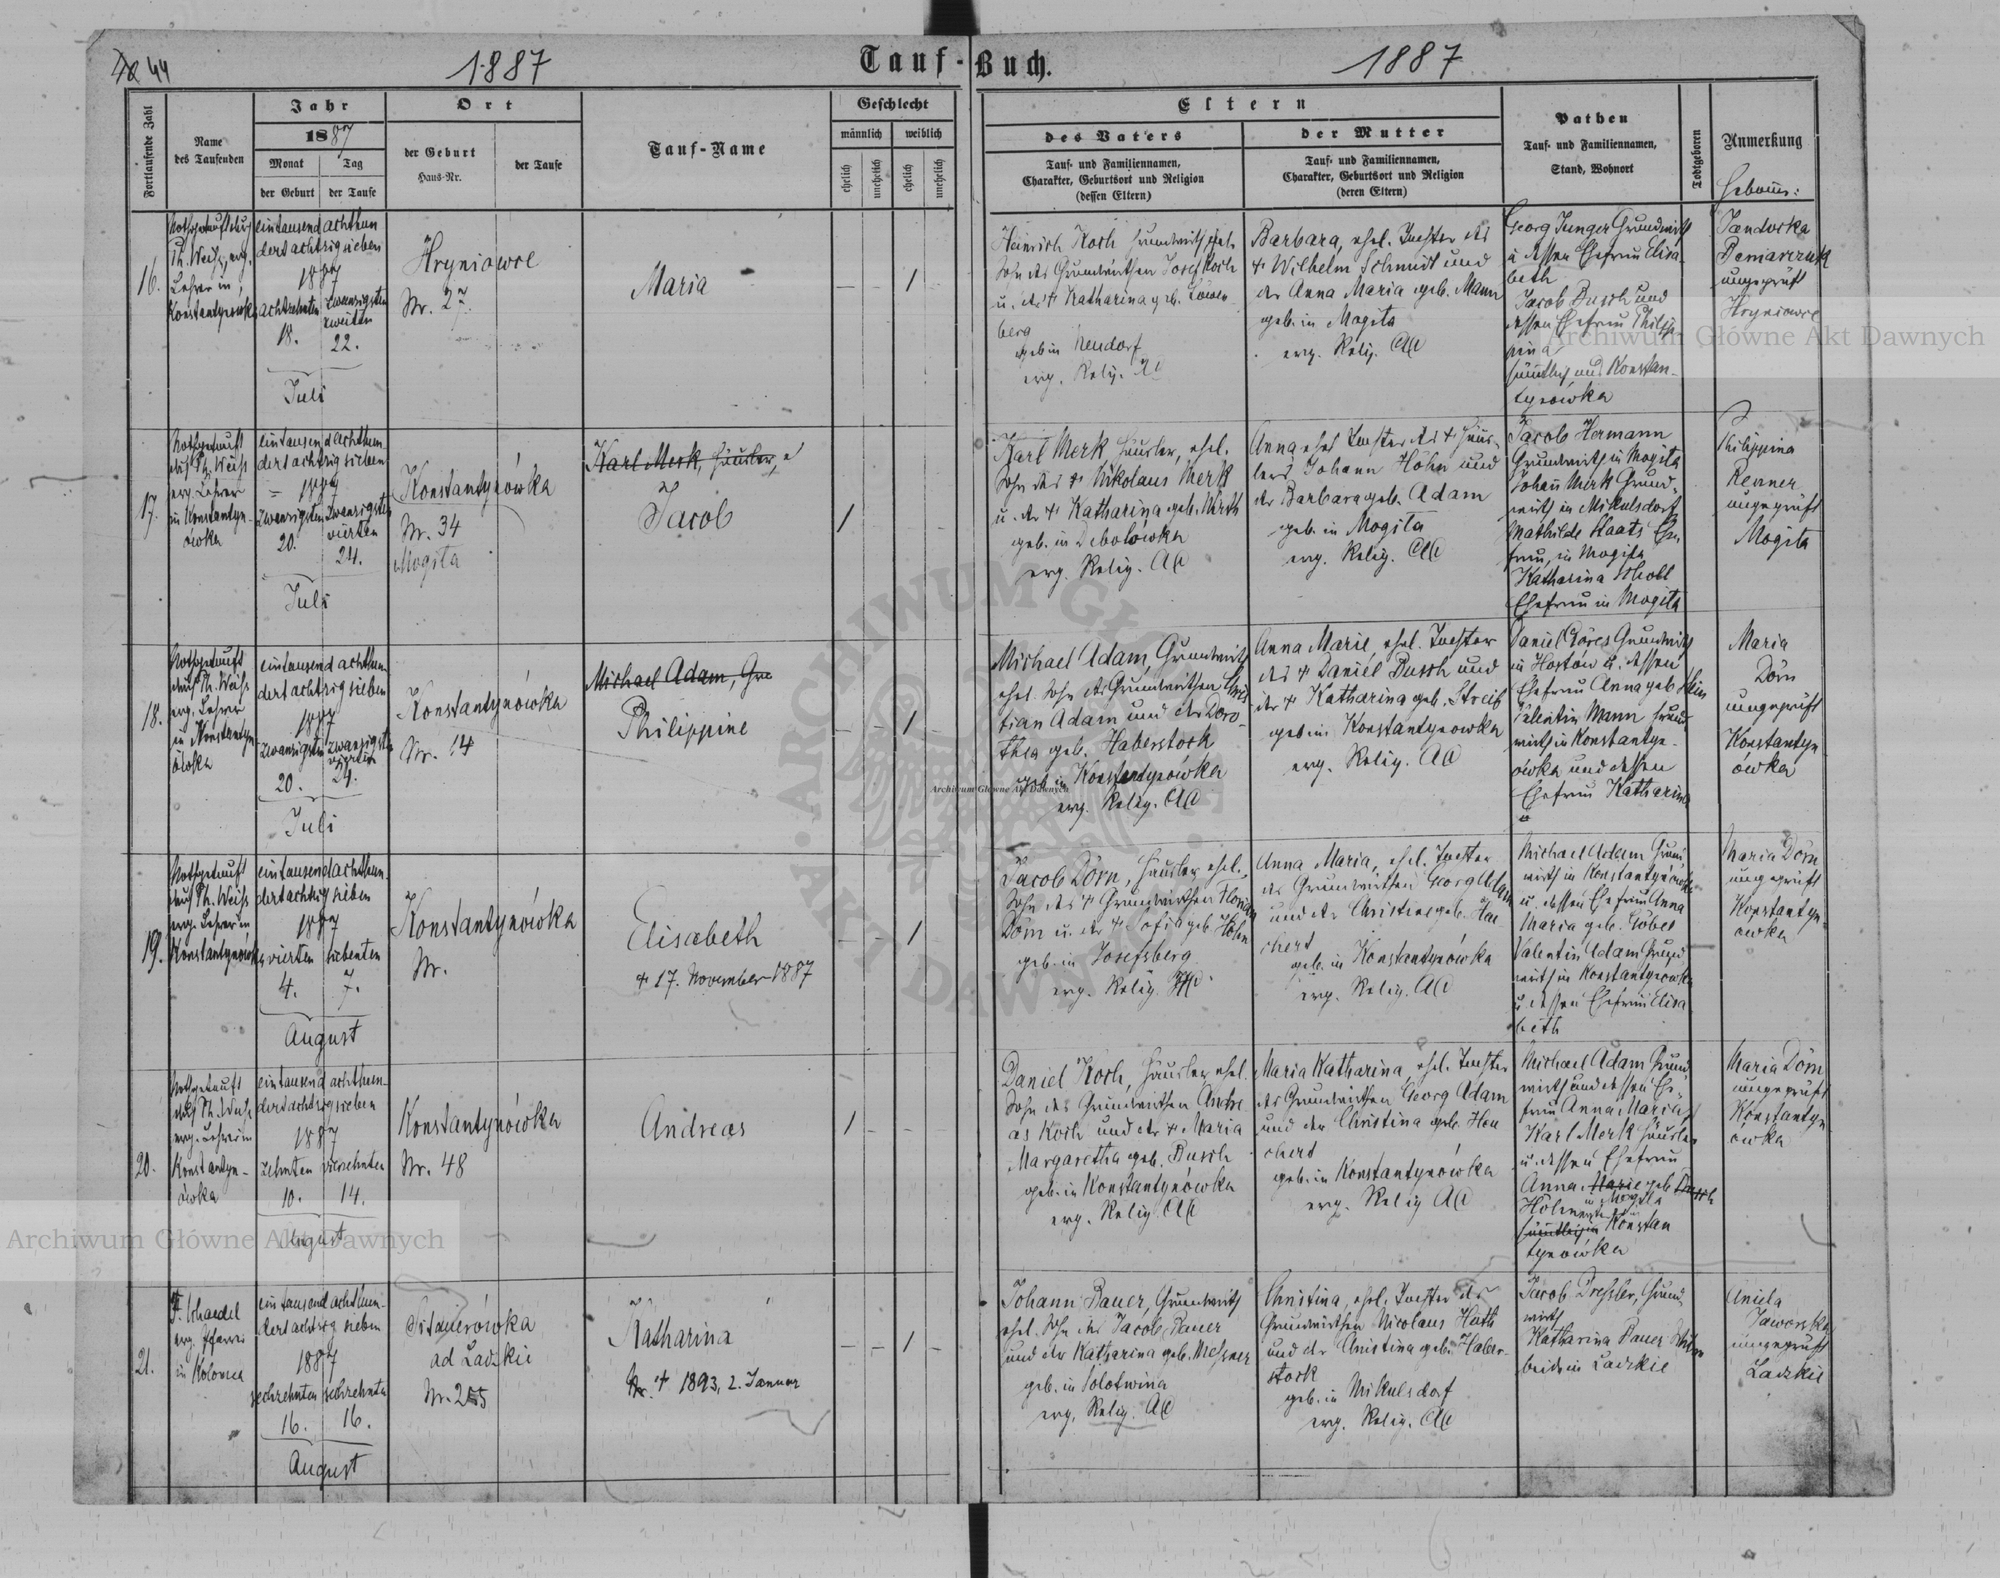 44
1887
Tauf-Buch.
1887
Fortlaufende Zahl
Name
des Taufenden
Jahr
1887
Monat
Tag
der Geburt
der Taufe
Ort
der Geburt
Haus-Nr.
der Taufe
Tauf-Name
Geschlecht
männlich
weiblich
ehelich
unehelich
ehelich
unehelich
Eltern
des Vaters
Tauf- und Familiennamen,
Charakter, Geburtsort und Religion
(dessen Eltern)
der Mutter
Tauf- und Familiennamen,
Charakter, Geburtsort und Religion
(deren Eltern)
Pathen
Tauf- und Familiennamen,
Stand, Wohnort
Todtgeboren
Anmerkung
16.
Lehrer in
Konstantynowka
eintausend achthun
dert achtzig sieben
1887
achtzehnten zwanzigsten
zweiten
18. 22.
Juli
Hryniowce
Nr. 27.
Maria
Heinrich Koch Grundwirth ehel.
Sohn des Grundwirthen Josef Koch
u. der + Katharina geb. Löwen
berg
geb. in Neudorf
evg. Relig. AC
Barbara, ehel. Tochter des
+ Wilhelm Schmidt und
der Anna Maria geb. Mann
geb. in Mogila
evg. Relig. AC
Georg Junger Grundwirth
u dessen Ehefrau Elisa-
beth
Jacob Busch und
dessen Ehefrau Philip
pina
sämtlich aus Konstan-
tynówka
ungeprüft
Hryniowce
17.
Nothgetauft
durch Ph. Weihs
evg. Lehrer
in Konstantyn-
ówka
eintausend achthun
dert achtzig sieben
1887
zwanzigsten zwanzigsten
vierten
20. 24.
Juli
Konstantynówka
Nr. 34
Mogila
Karl Merk, Häusler, e
Jacob
Karl Merk Häusler, ehel.
Sohn des + Nikolaus Merk
u. der + Katharina geb. Wirth
geb. in Debolówka
evg. Relig. AC
Anna ehel Tochter des + Häus-
lers Johann Höhn und
der Barbara geb. Adam
geb. in Mogila
evg. Relig. AC
Jacob Hermann
Grundwirth in Mogila
Johann Merk Grund-
wirth in Mikulsdorf
Mathilde Staats Ehe
frau, in Mogila
Katharina Scholl
Ehefrau in Mogila
Philippina
Renner
ungeprüft
Mogila
18.
Nothgetauft
durch Ph. Weihs
evg. Lehrer
in Konstantyn
ówka
eintausend achthun
dert achtzig sieben
1887
zwanzigsten zwanzigsten
vierten
20. 24.
Juli
Konstantynówka
Nr. 14
Michael Adam, Gru
Philippine
Michael Adam Grundwirth
ehel. Sohn des Grundwirthen Chris
tian Adam und der Doro-
thea geb. Haberstock
geb in Konstantynówka
evg. Relig. AC
Anna Marie, ehel. Tochter
des + Daniel Busch und
der + Katharina geb. Streib
geb in Konstantynowka
evg. Relig. AC
Daniel Göres Grundwirth
in Horton u. dessen
Ehefrau Anna geb Klein
Valentin Mann Grund
wirth in Konstantyn-
ówka und dessen
Ehefrau Katharina
Maria
Dörn
ungeprüft
Konstantyn
ówka
19.
Nothgetauft
durch Ph. Weihs
evg. Lehrer in
Konstantynówka
eintausend achthun-
dert achtzig sieben
1887
vierten siebenten
4. 7.
August
Konstantynówka
Nr.
Elisabeth
+ 17. November 1887
Jacob Dörn, Häusler ehel.
Sohn des + Grundwirthen Florian
Dörn u. der + Sofia geb. Höhn
geb. in Josefsberg
evg. Relig.
Anna Maria, ehel. Tochter
des Grundwirthen Georg Adam
und der Christine geb. Hau
chert
geb. in Konstantynówka
evg. Relig. AC
Michael Adam Grund
wirth in Konstantynówka
u. dessen Ehefrau Anna
Maria geb. Göbel
Valentin Adam Grund
wirth in Konstantynowka
u dessen Ehefrau Elisa
beth
Maria Dörn
ungeprüft
Konstantyn-
ówka
20.
Nothgetauft
durch Ph. Weihs
evg. Lehrer in
Konstantyn-
ówka
eintausend achthun-
dert achtzig sieben
1887
zehnten vierzehnten
10. 14.
August
Konstantynówka
Nr. 48
Andreas
Daniel Koch, Häusler ehel.
Sohn des Grundwirthen Andre
as Koch und der + Maria
Margaretha geb. Busch
geb. in Konstantynówka
evg. Relig. AC
Maria Katharina, ehel. Tochter
des Grundwirthen Georg Adam
und der Christina geb. Hau
chert
geb. in Konstantynówka
evg. Relig AC
Michael Adam Grund
wirth und dessen Ehe-
frau Anna Maria,
Karl Merk Häusler
u. dessen Ehefrau
Anna Marie geb Busch
Höhn
Konstan
tynówka
Maria Dörn
ungeprüft
Konstantyn-
ówka
21.
evg. Pfarrer
in Kolomea
eintausend achthun-
dert achtzig sieben
1887
sechzehnten sechzehnten
16. 16.
August
Sitauerówka
ad Ladzkie
Nr. 255
Katharina
+ 1893, 2. Januar
Johann Bauer, Grundwirth
ehel. Sohn des Jacob Bauer
und der Katharina geb. Messner
geb. in Solotwina
evg. Relig. AC
Christina, ehel. Tochter des
Grundwirthen Nicolaus Huth
und der Christina geb. Haber-
stock
geb. in Mikulsdorf
evg. Relig. AC
Jacob Dressler, Grund
wirth
Katharina Bauer
beide in Ladzkie
Aniela
Jaworska
ungeprüft
Ladzkie
Archiwum Główne Akt Dawnych
Archiwum Główne Akt Dawnych
Archiwum Główne Akt Dawnych